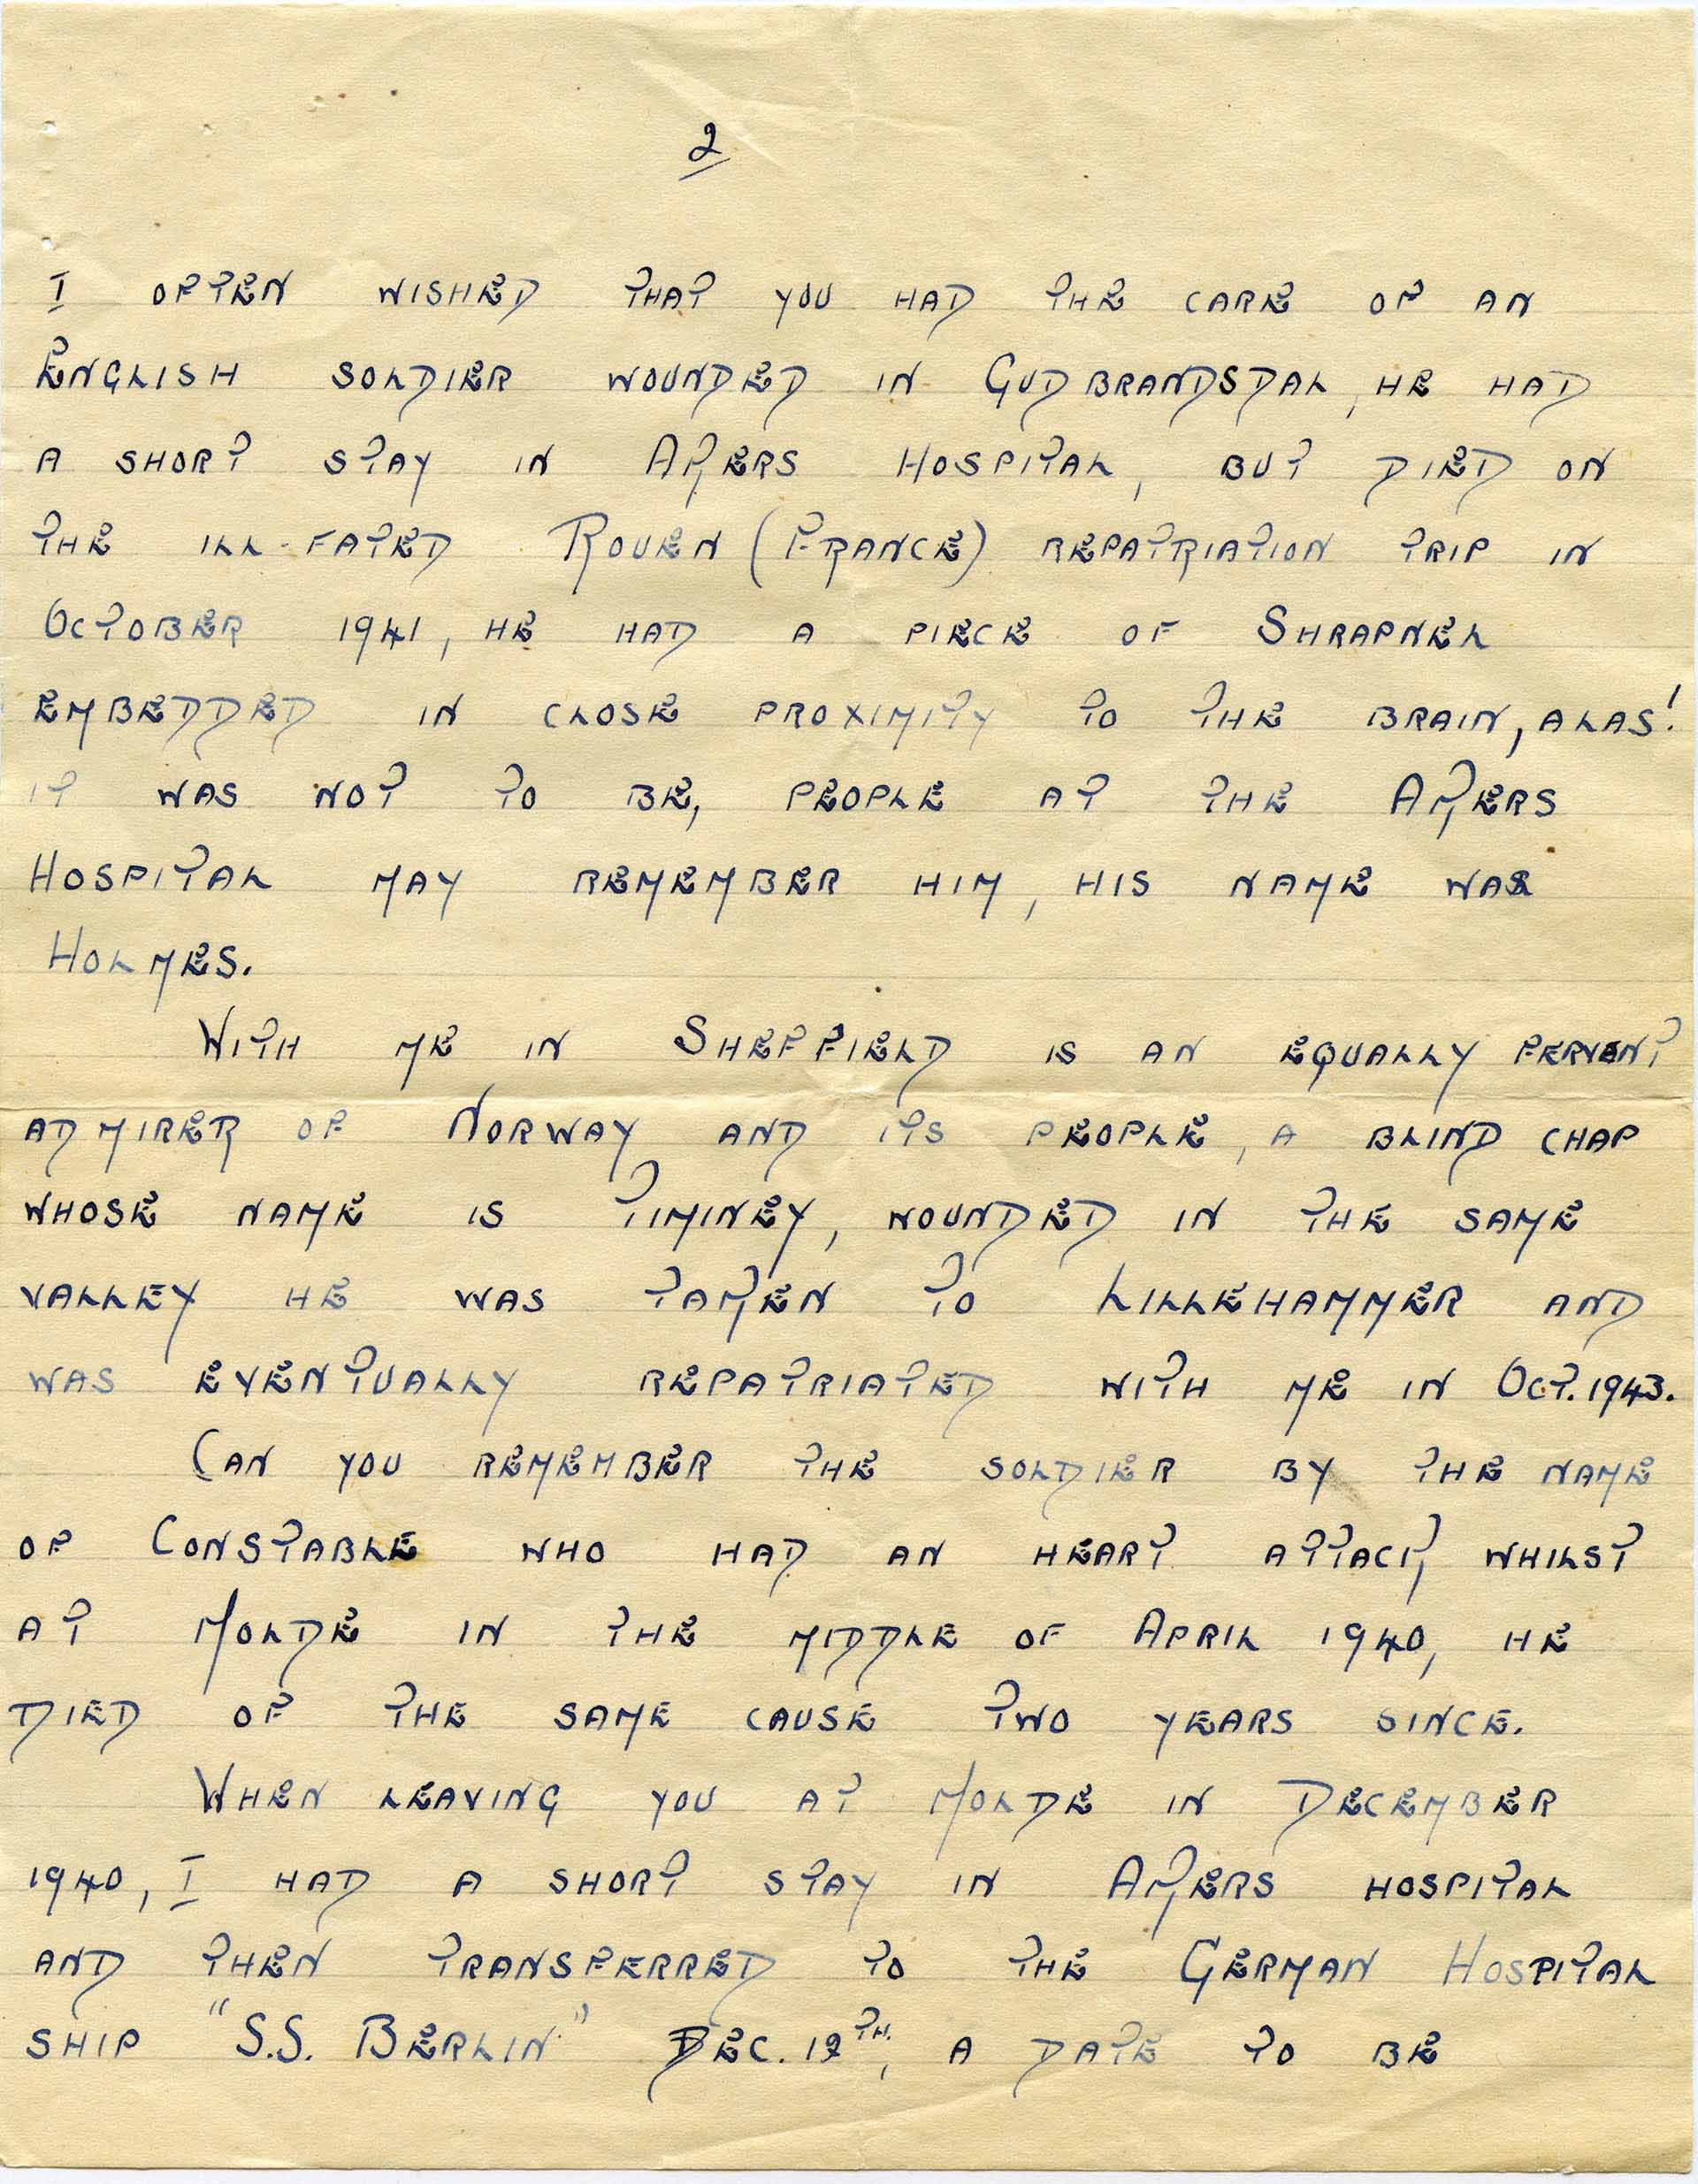 2
I OFTEN WISHED THAT YOU HAD THE CARE OF AN
ENGLISH SOLDIER WOUNDED IN GUDBRANDSDAL, HE HAD
A SHORT STAY IN AKERS HOSPITAL, BUT DIED ON
THE ILL-FATED ROUEN (FRANCE) REPATRIATION TRIP IN
OCTOBER 1941, HE HAD A PIECE OF SHRAPNEL
EMBEDDED IN CLOSE PROXIMITY TO THE BRAIN, ALAS!
IT WAS NOT TO BE, PEOPLE AT THE AKERS
HOSPITAL MAY REMEMBER HIM, HIS NAME WAS
HOLMES.
WITH ME IN SHEFFIELD IS AN EQUALLY FERVENT
ADMIRER OF NORWAY AND ITS PEOPLE, A BLIND CHAP
WHOSE NAME IS TIMINEY, WOUNDED IN THE SAME
VALLEY HE WAS TAKEN TO LILLEHAMMER AND
WAS EVENTUALLY REPATRIATED WITH ME IN OCT. 1943.
CAN YOU REMEMBER THE SOLDIER BY THE NAME
OF CONSTABLE WHO HAD AN HEART ATTACK WHILST
AT MOLDE IN THE MIDDLE OF APRIL 1940, HE
DIED OF THE SAME CAUSE TWO YEARS SINCE.
WHEN LEAVING YOU AT MOLDE IN DECEMBER
1940, I HAD A SHORT STAY IN AKERS HOSPITAL
AND THEN TRANSFERRED TO THE GERMAN HOSPITAL
SHIP "S.S. BERLIN" DEC. 12TH, A DATE TO BE